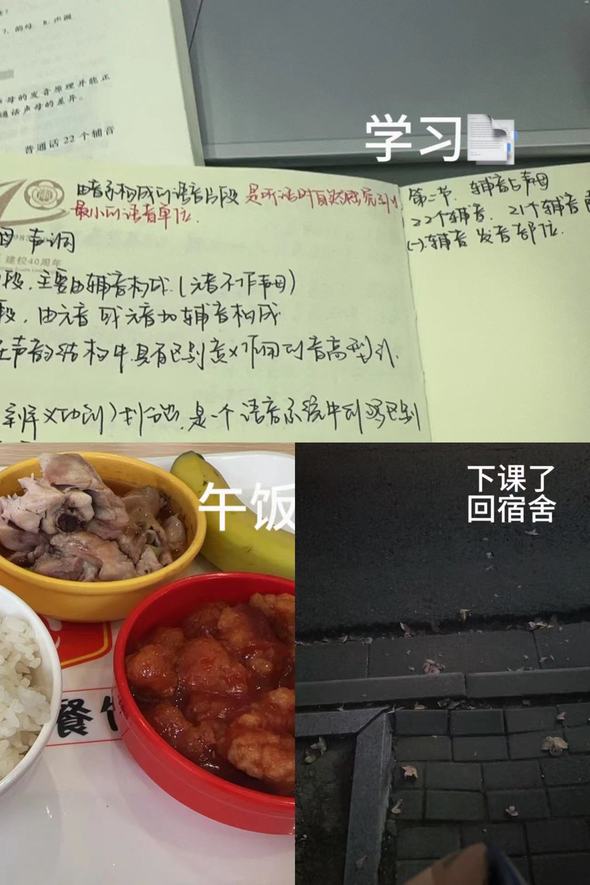 7、的母、8、声调
声母的发音原理并能正
通话声母的差异。
普通话 22 个辅音
学习
由音素构成的语音片段 是听话时自然感觉到的
最小的语音单位.
建校40周年
母 声调
段，主要由辅音构成.(元音不作声母)
段，由元音或元音加辅音构成
在声韵结构中具有区别意义作用的音高型式.
辨义功能)划分的, 是一个语音系统中
第二节. 辅音与声母
22个辅音. 21个辅音
(一).辅音发音部位.
午饭
餐
下课了
回宿舍